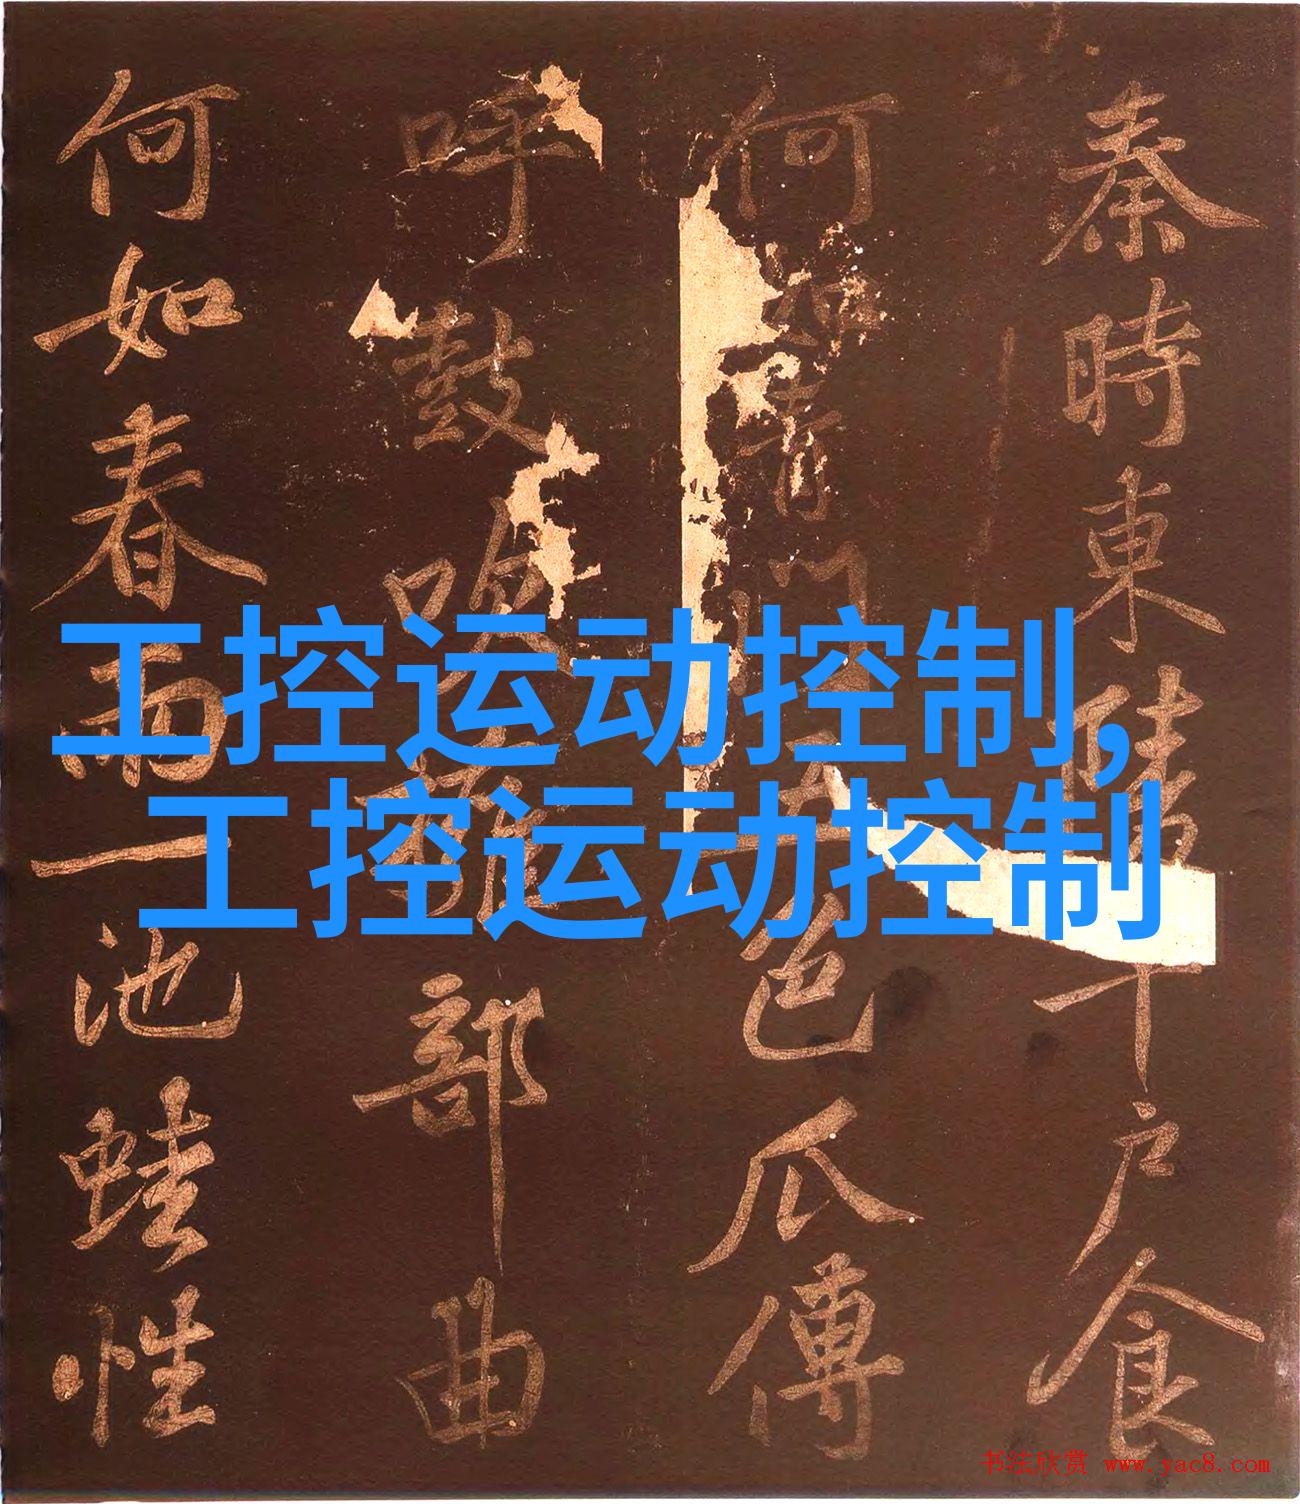 秦時東陵千户食
何如青門五色瓜傳
呼鼓吹雜部曲
何如春雨一池蛙性
工控运动控制,
工控运动控制
书法欣赏 www.yac8.com